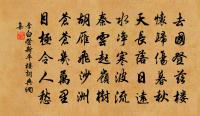 去國登茲樓
懷歸傷暮秋
天長落日遠
水淨寒波流
秦雲起嶺樹
胡雁飛沙洲
蒼蒼幾萬里
目極令人愁
李白登新平樓詞典網
集